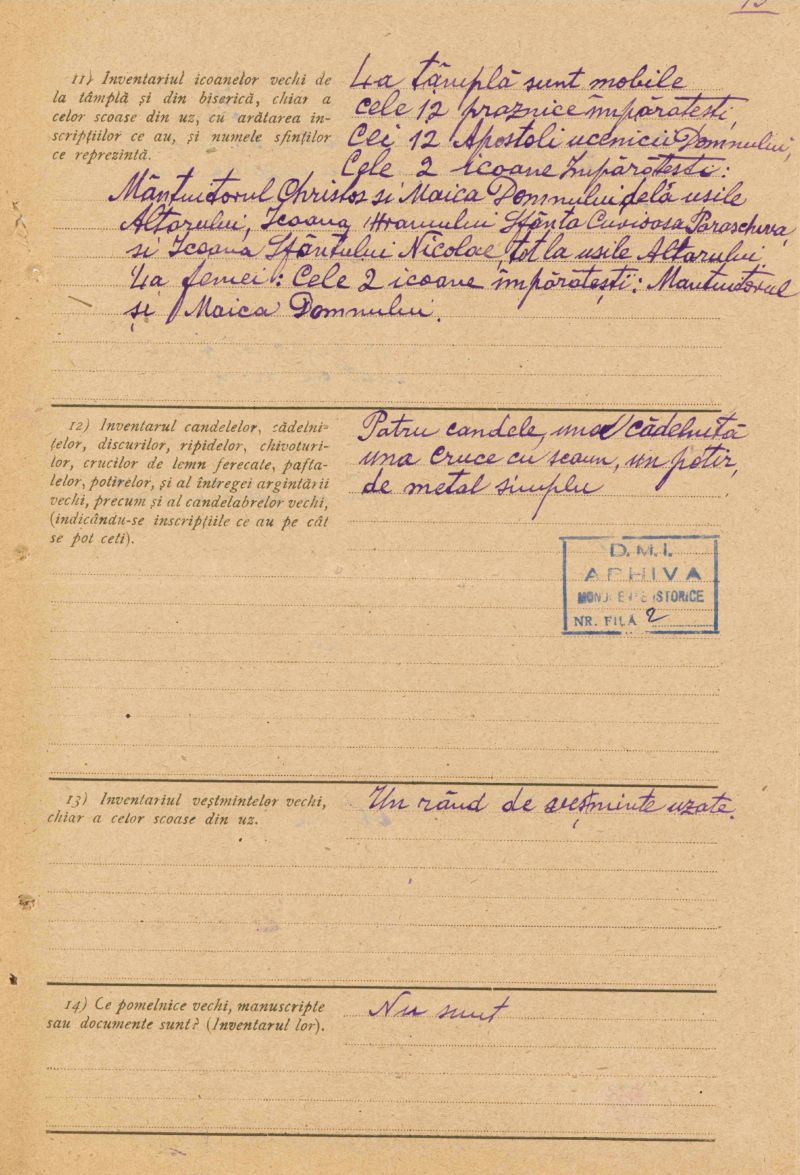 11) Inventariul icoanelor vechi de
la tâmplă și din biserică, chiar a
celor scoase din uz, cu arătarea in-
scripțiilor ce au, și numele sfinților
ce reprezintă.
La tâmplă sunt mobile
cele 12 praznice împărătești,
Cei 12 Apostoli ucenicii Domnului,
Cele 2 icoane Împărătești:
Mântuitorul Christos si Maica Domnului dela usile
Altarului, Icoana Hramului Sfânta Cuvioasa Paraschiva,
si Icoana Sfântului Nicolae, tot la usile Altarului.
La femei: Cele 2 icoane împărătești: Mantuitorul
și Maica Domnului.
12) Inventarul candelelor, cădelni=
țelor, discurilor, ripidelor, chivoturi-
lor, crucilor de lemn ferecate, pafta-
lelor, potirelor, și al întregei argintării
vechi, precum și al candelabrelor vechi,
(indicându-se inscripțiile ce au pe cât
se pot ceti).
Patru candele, una cădelnită
una cruce cu scaun, un potir,
de metal simplu
D.M.I.
ARHIVA
MONUMENTE ISTORICE
NR. FILĂ 2
13) Inventariul veștmintelor vechi,
chiar a celor scoase din uz.
Un rând de veștminte uzate.
14) Ce pomelnice vechi, manuscripte
sau documente sunt? (Inventarul lor).
Nu sunt